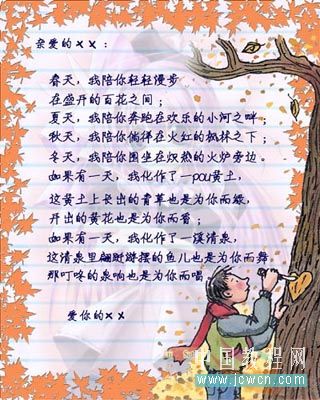 亲爱的××：
春天，我陪你轻轻漫步
在盛开的百花之间；
夏天，我陪你奔跑在欢乐的小河之畔；
秋天，我陪你徜徉在火红的枫林之下；
冬天，我陪你围坐在炽热的火炉旁边。
如果有一天，我化作了一pou黄土，
这黄土上长出的青草也是为你而绿，
开出的黄花也是为你而香；
如果有一天，我化作了一溪清泉，
这清泉里翩跹游摆的鱼儿也是为你而舞
那叮咚的泉响也是为你而唱
爱你的××
中国教程网
www.jcwcn.com